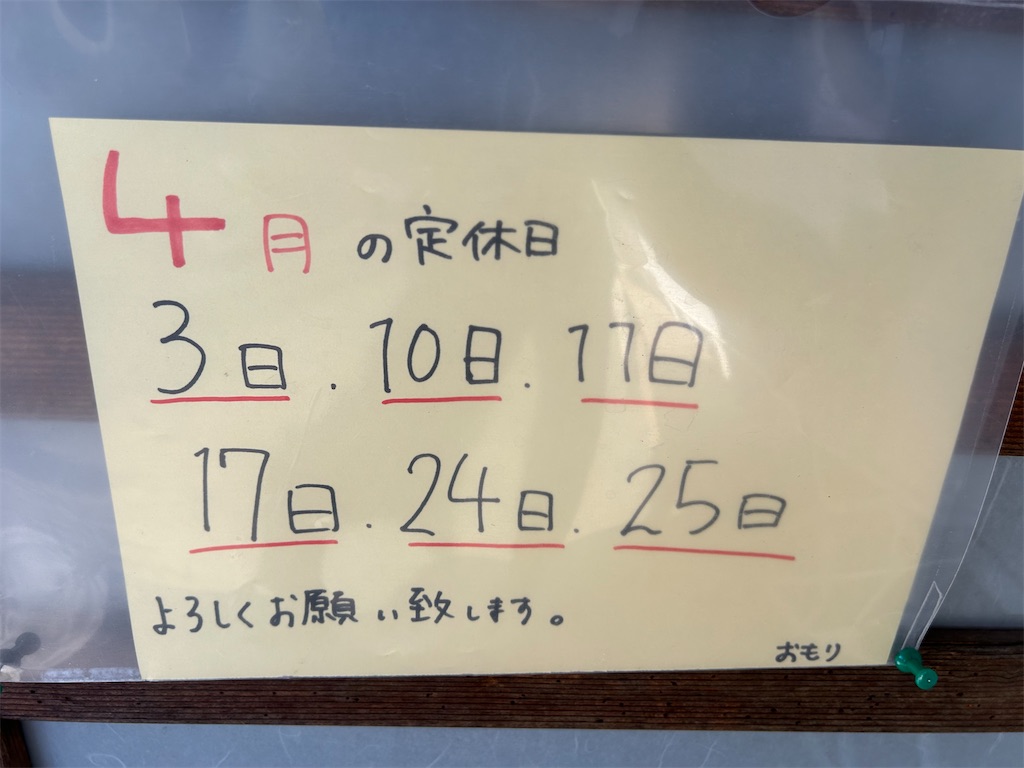 4月の定休日
3日.10日.11日
17日.24日.25日
よろしくお願い致します。
おもり